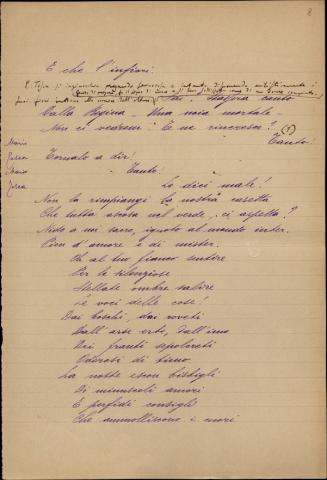 8
E che l'infiori.
E Tosca si inginocchia
Poi - stasera canto
Dalla Regina - Una noia mortale -
Non ci vedrem! E ne rincresce? (1)
Mario Tanto!
Tosca Tornalo a dir!
Mario Tanto!
Tosca Lo dici male!
Non la rimpiangi la nostra casetta
Che tutta ascosa nel verde, ci aspetta?
Nido a noi sacro, ignoto al mondo inter,
Pien d'amore e di mister.
Oh al tuo fianco sentire
Per le silenziose
Stellate ombre salire
Le voci delle cose!
Dai boschi, dai roveti
Dall'arse erbe, dall'imo
Dei franti sepolcreti
Odorosi di timo
La notte escon bisbigli
Di minuscoli amori
E perfidi consigli
Che ammolliscono i cuori